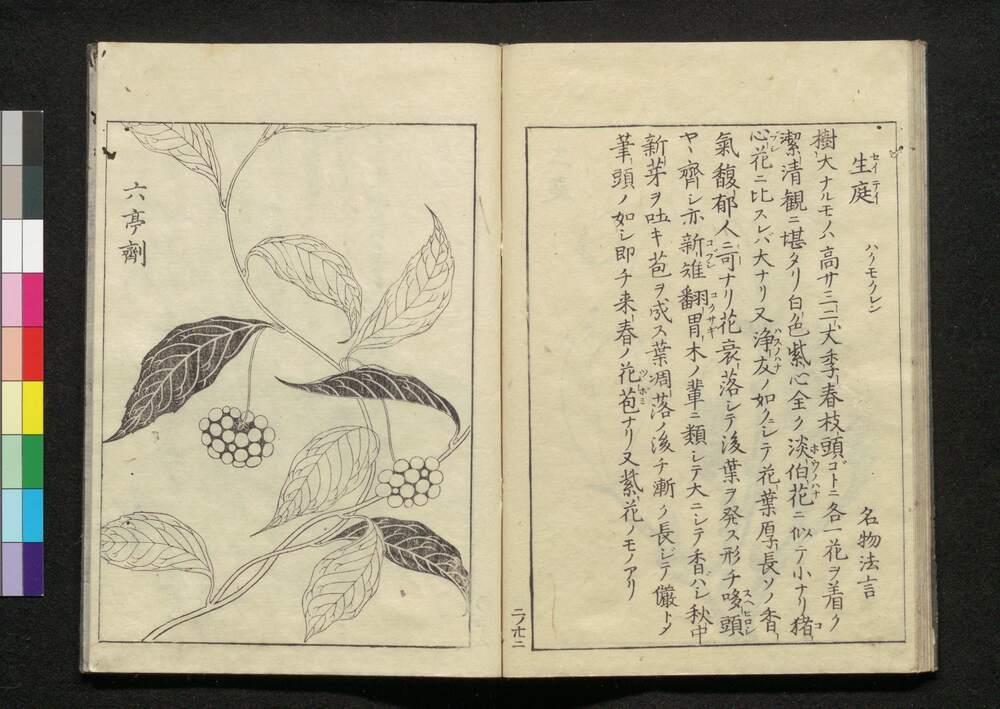 生庭 セイテイ ハクモクレン 名物法言
樹大ナルモノハ高サ二三丈季春枝頭ゴトニ各一花ヲ着ク
潔清観ニ堪タリ白色紫心全ク淡伯花ニ似テ小ナリ猪 ホウノハナ コ
心花ニ比スレバ大ナリ又浄友ノ如クシテ花葉厚長ソノ香 ブシ ハスノハナ
氣馥郁人ニ可ナリ花衰落シテ後葉ヲ発ス形チ哆頭 スヘヒロシ
ヤヽ齊シ亦新雉翻胃木ノ輩ニ類シテ大ニシテ香バシ秋中 コブシ コクサギ
新芽ヲ吐キ苞ヲ成ス葉凋落ノ後チ漸ク長ジテ儼トメ
筆頭ノ如シ即チ来春ノ花苞ナリ又紫花ノモノアリ ツボミ
六亭劑